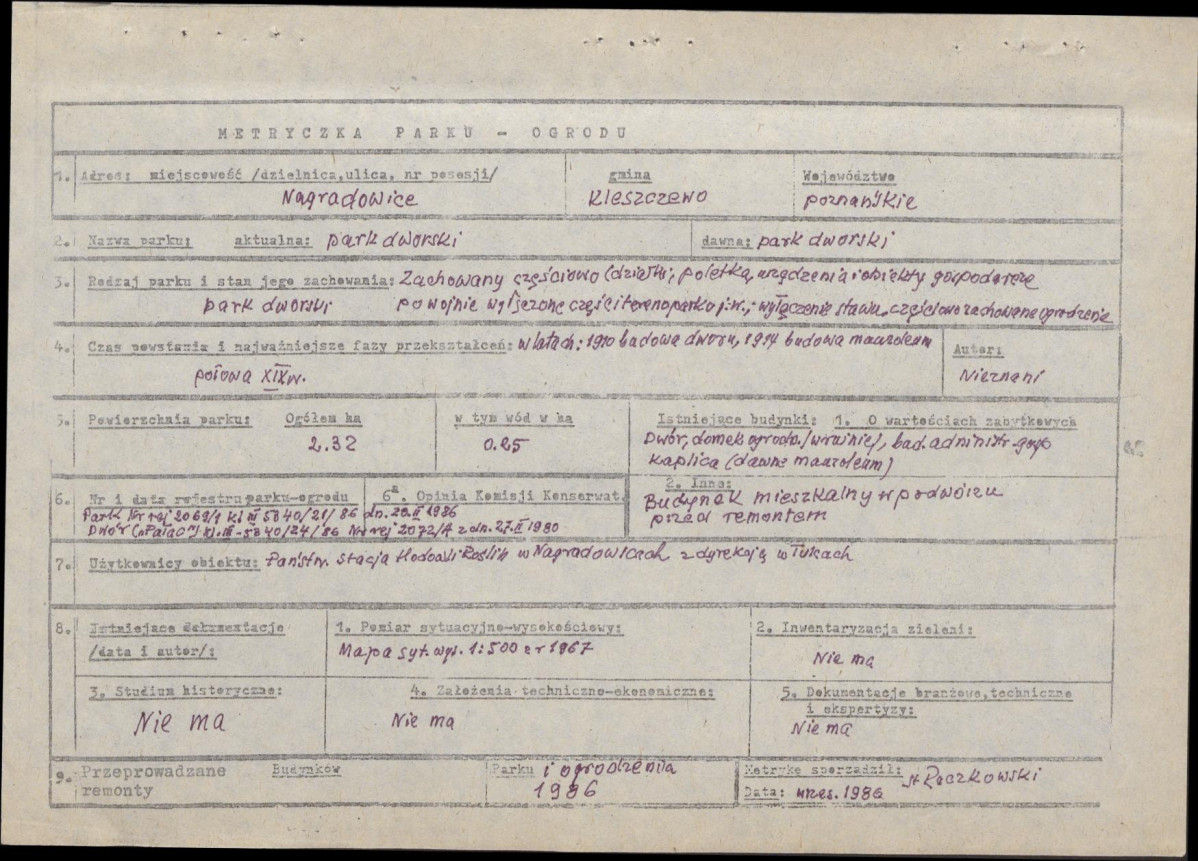 METRYCZKA PARKU - OGRODU
1. Adres: miejscowość /dzielnica, ulica, nr posesji/ gmina Województwo
Nagradowice Kleszczewo poznańskie
2. Nazwa parku: aktualna: park dworski dawna: park dworski
3. Rodzaj parku i stan jego zachowania: Zachowany częściowo (działki, poletka, urządzenia i obiekty gospodarcze
park dworski powojnie częścI wyłączenie stawu, częściowo zachowane ogrodzenie
4. Czas powstania i najważniejsze fazy przekształceń: w latach: 1910 budowa dworu, 1914 budowa mauzoleum Autor:
połowa XIXw. Nieznani
5. Powierzchnia parku: Ogółem ha w tym wód w ha Istniejące budynki: 1. O wartościach zabytkowych
2.32 0.25 Dwór, domek ogrodn. /w ruinie/, bud. administr-gosp
kaplica (dawne mauzoleum)
2. Inne:
6. Nr i data rejestru parku-ogrodu 6a. Opinia Komisji Konserwat. Budynek mieszkalny w podwórzu
Park Nr rej 2069/A kl III 5840/21/86 dn. 20.II 1986 przed remontem
Dwór („Pałac”) kl. III-5840/24/86 Nr rej 2072/A z dn. 27.II 1980
7. Użytkownicy obiektu: Państw. Stacja Hodowli Roślin w Nagradowicach z dyrekcją w Tulcach
8. Istniejące dokumentacje 1. Pomiar sytuacyjno-wysokościowy: 2. Inwentaryzacja zieleni:
/data i autor/: Mapa syt. wys. 1:500 z r 1967 Nie ma
3. Studium historyczne: 4. Założenia techniczno-ekonomiczne: 5. Dokumentacje branżowe, techniczne
i ekspertyzy:
Nie ma Nie ma Nie ma
9. Przeprowadzane Budynków Parku i ogrodzenia Metrykę sporządził: St Raczkowski
remonty 1986 Data: wrzes. 1986